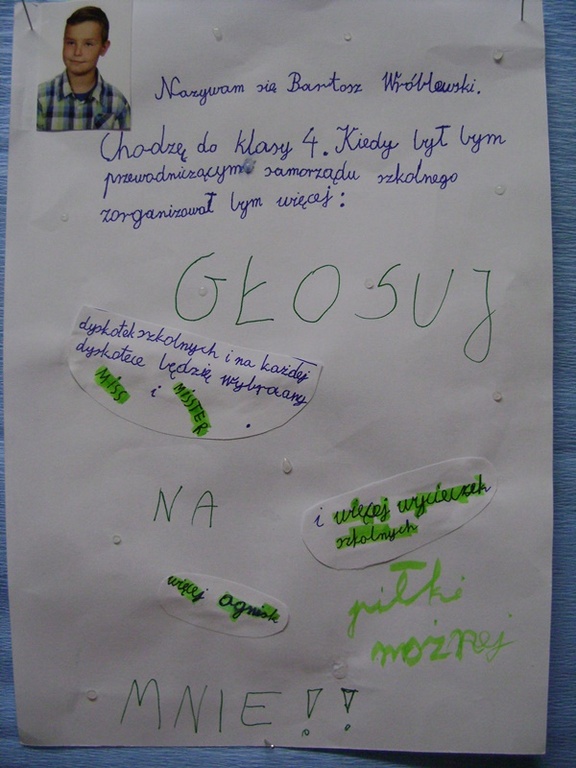 Nazywam się Bartosz Wróblewski.
Chodzę do klasy 4. Kiedy był bym
przewodniczącym samorządu szkolnego
zorganizował bym więcej:
GŁOSUJ
dyskotek szkolnych i na każdej
dyskotece będzię wybrany
MISS i MISSTER .
NA
i więcej wycieczek
szkolnych
więcej ognisk
piłki
nożnej
MNIE!!